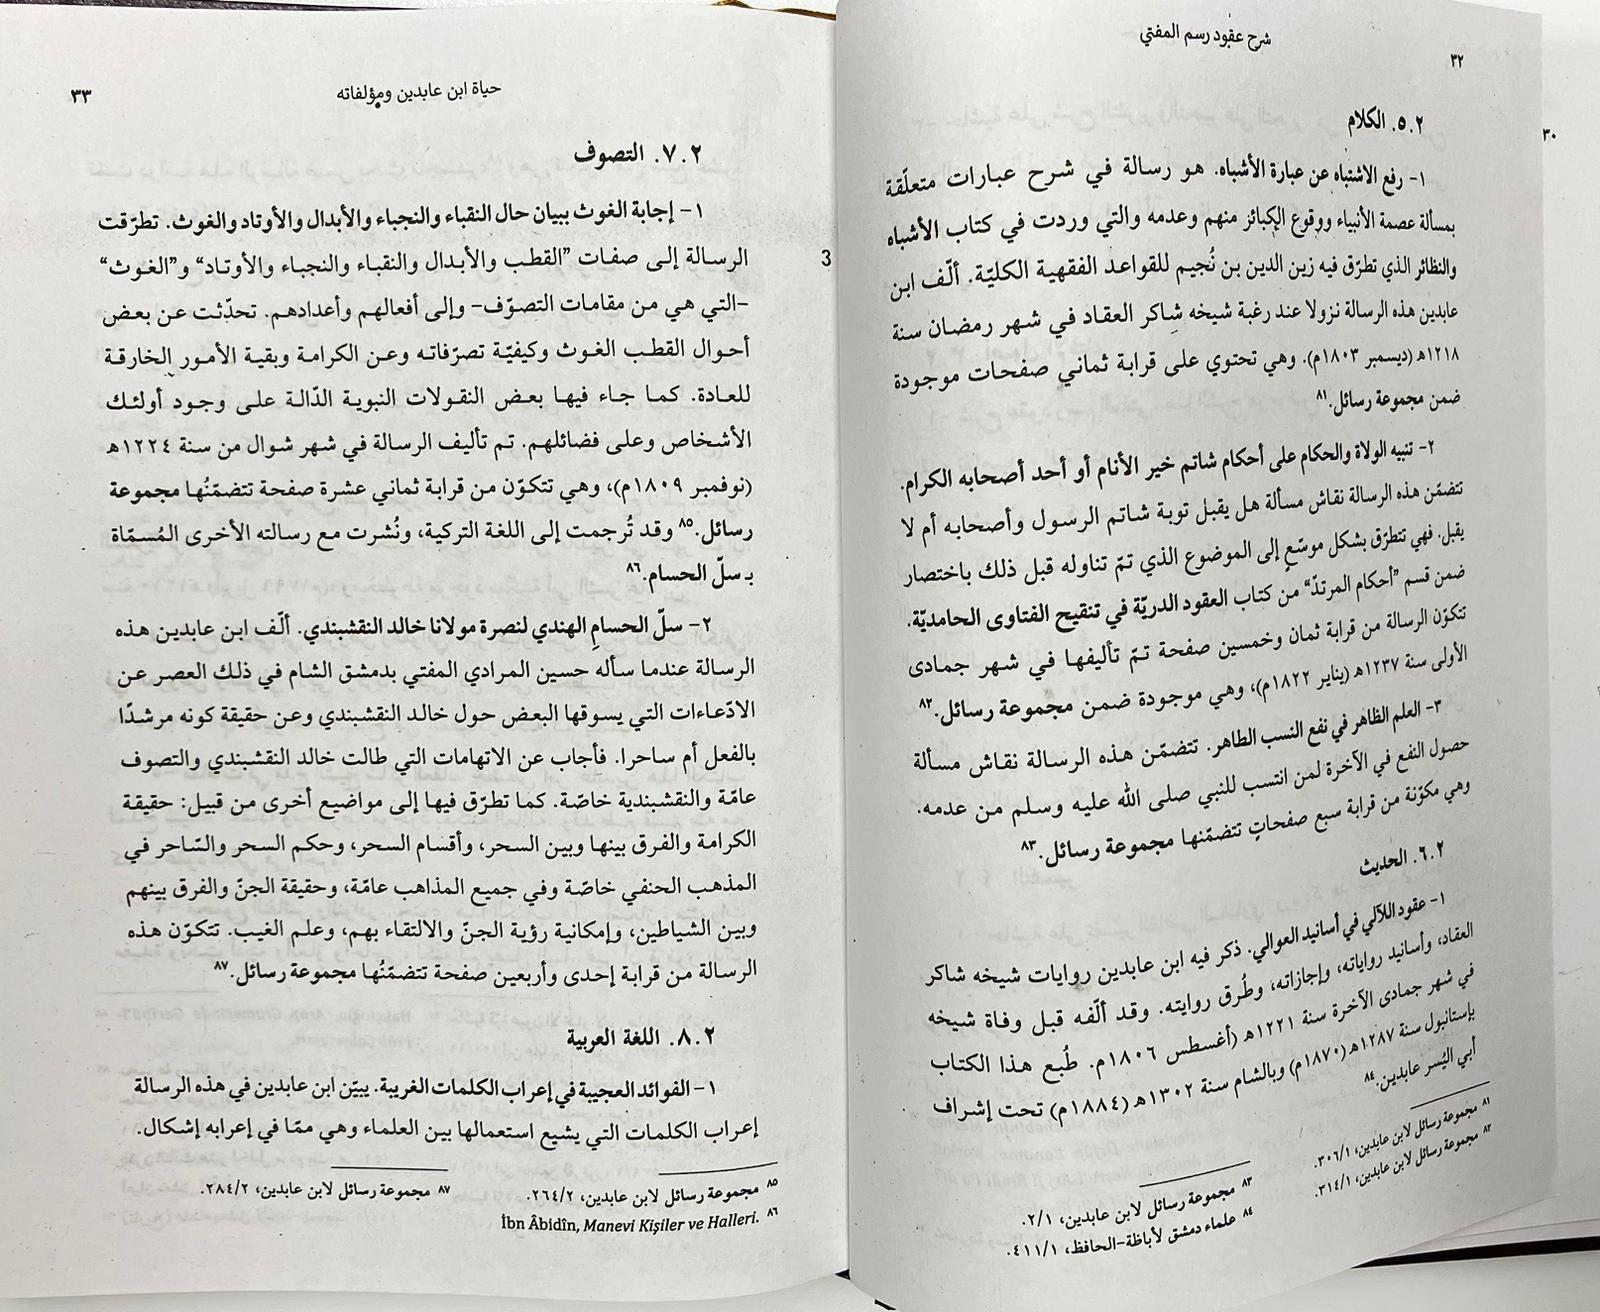 شرح عقود رسم المفتي
٣٢
٥.٢. الكلام
١- رفع الاشتباه عن عبارة الأشباه. هو رسالة في شرح عبارات متعلّقة
بمسألة عصمة الأنبياء ووقوع الكبائر منهم وعدمه والتي وردت في كتاب الأشباه
والنظائر الذي تطرّق فيه زين الدين بن نُجيم للقواعد الفقهية الكليّة. ألّف ابن
عابدين هذه الرسالة نزولا عند رغبة شيخه شاكر العقاد في شهر رمضان سنة
١٢١٨هـ (ديسمبر ١٨٠٣م). وهي تحتوي على قرابة ثماني صفحات موجودة
ضمن مجموعة رسائل.٨١
٢- تنبيه الولاة والحكام على أحكام شاتم خير الأنام أو أحد أصحابه الكرام.
تتضمّن هذه الرسالة نقاش مسألة هل يقبل توبة شاتم الرسول وأصحابه أم لا
يقبل. فهي تتطرّق بشكل موسّع إلى الموضوع الذي تمّ تناوله قبل ذلك باختصار
ضمن قسم "أحكام المرتدّ" من كتاب العقود الدريّة في تنقيح الفتاوى الحامديّة.
تتكوّن الرسالة من قرابة ثمان وخمسين صفحة تمّ تأليفها في شهر جمادى
الأولى سنة ١٢٣٧هـ (يناير ١٨٢٢م)، وهي موجودة ضمن مجموعة رسائل.٨٢
٣- العلم الظاهر في نفع النسب الطاهر. تتضمّن هذه الرسالة نقاش مسألة
حصول النفع في الآخرة لمن انتسب للنبي صلى الله عليه وسلم من عدمه.
وهي مكوّنة من قرابة سبع صفحاتٍ تتضمّنها مجموعة رسائل.٨٣
٦.٢. الحديث
١- عقود اللآلي في أسانيد العوالي. ذكر فيه ابن عابدين روايات شيخه شاكر
العقاد، وأسانيد رواياته، وإجازاته، وطُرق روايته. وقد ألّفه قبل وفاة شيخه
في شهر جمادى الآخرة سنة ١٢٢١هـ (أغسطس ١٨٠٦م. طُبع هذا الكتاب
بإستانبول سنة ١٢٨٧هـ (١٨٧٠م) وبالشام سنة ١٣٠٢هـ (١٨٨٤م) تحت إشراف
أبي اليُسر عابدين.٨٤
٨١ مجموعة رسائل لابن عابدين، ٣٠٦/١.
٨٢ مجموعة رسائل لابن عابدين، ٣١٤/١.
٨٣ مجموعة رسائل لابن عابدين، ٢/١.
٨٤ علماء دمشق لأباظة-الحافظ، ٤١١/١.
٣٠
حياة ابن عابدين ومؤلفاته
٣٣
٧.٢. التصوف
١- إجابة الغوث ببيان حال النقباء والنجباء والأبدال والأوتاد والغوث. تطرّقت
الرسالة إلى صفات "القطب والأبدال والنقباء والنجباء والأوتاد" و"الغوث"
-التي هي من مقامات التصوّف- وإلى أفعالهم وأعدادهم. تحدّثت عن بعض
أحوال القطب الغوث وكيفيّة تصرّفاته وعن الكرامة وبقية الأمور الخارقة
للعادة. كما جاء فيها بعض النقولات النبوية الدّالة على وجود أولئك
الأشخاص وعلى فضائلهم. تم تأليف الرسالة في شهر شوال من سنة ١٢٢٤هـ
(نوفمبر ١٨٠٩م)، وهي تتكوّن من قرابة ثماني عشرة صفحة تتضمّنُها مجموعة
رسائل.٨٥ وقد تُرجمت إلى اللغة التركية، ونُشرت مع رسالته الأخرى المُسمّاة
بـ سلّ الحسام.٨٦
٢- سلّ الحسامِ الهندي لنصرة مولانا خالد النقشبندي. ألّف ابن عابدين هذه
الرسالة عندما سأله حسين المرادي المفتي بدمشق الشام في ذلك العصر عن
الادّعاءات التي يسوقها البعض حول خالد النقشبندي وعن حقيقة كونه مرشدًا
بالفعل أم ساحرا. فأجاب عن الاتهامات التي طالت خالد النقشبندي والتصوف
عامّة والنقشبندية خاصّة. كما تطرّق فيها إلى مواضيع أخرى من قبيل: حقيقة
الكرامة والفرق بينها وبين السحر، وأقسام السحر، وحكم السحر والسّاحر في
المذهب الحنفي خاصّة وفي جميع المذاهب عامّة، وحقيقة الجنّ والفرق بينهم
وبين الشياطين، وإمكانية رؤية الجنّ والالتقاء بهم، وعلم الغيب. تتكوّن هذه
الرسالة من قرابة إحدى وأربعين صفحة تتضمّنُها مجموعة رسائل.٨٧
٨.٢. اللغة العربية
١- الفوائد العجيبة في إعراب الكلمات الغريبة. يبيّن ابن عابدين في هذه الرسالة
إعراب الكلمات التي يشيع استعمالها بين العلماء وهي ممّا في إعرابه إشكال.
٨٥ مجموعة رسائل لابن عابدين، ٢٦٤/٢.
٨٦ İbn Âbidîn, Manevi Kişiler ve Halleri.
٨٧ مجموعة رسائل لابن عابدين، ٢٨٤/٢.
3